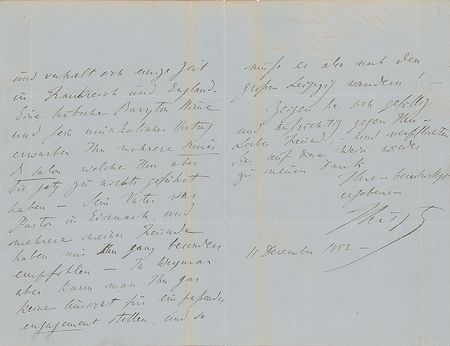 und enthält sich einige Zeit
in Frankreich und England.
Eine hübsche Baryton Stimme
und sein musikalischer Vortrag
erwarben Ihm mehrere Succès
de salon, welche Ihn aber
bis jetz zu nichts geführt
haben – Sein Vater war
Pastor in Eisenach, und
mehrere meiner Freunde
haben mir Ihn ganz besonders
empfohlen – In Weymar
aber kann man Ihm gar
keine Aussicht für ein passendes
engagement stellen, und so
muß er also nach dem
großen Leipzig wandern! –
Zeigen Sie sich gefällig
und aufrichtig gegen Ihn –
Lieber Freund, und verpflichten
Sie auf diese Weise wieder
zu neuem Dank
Ihren
ergebenen
FLiszt
11 December 1852 –